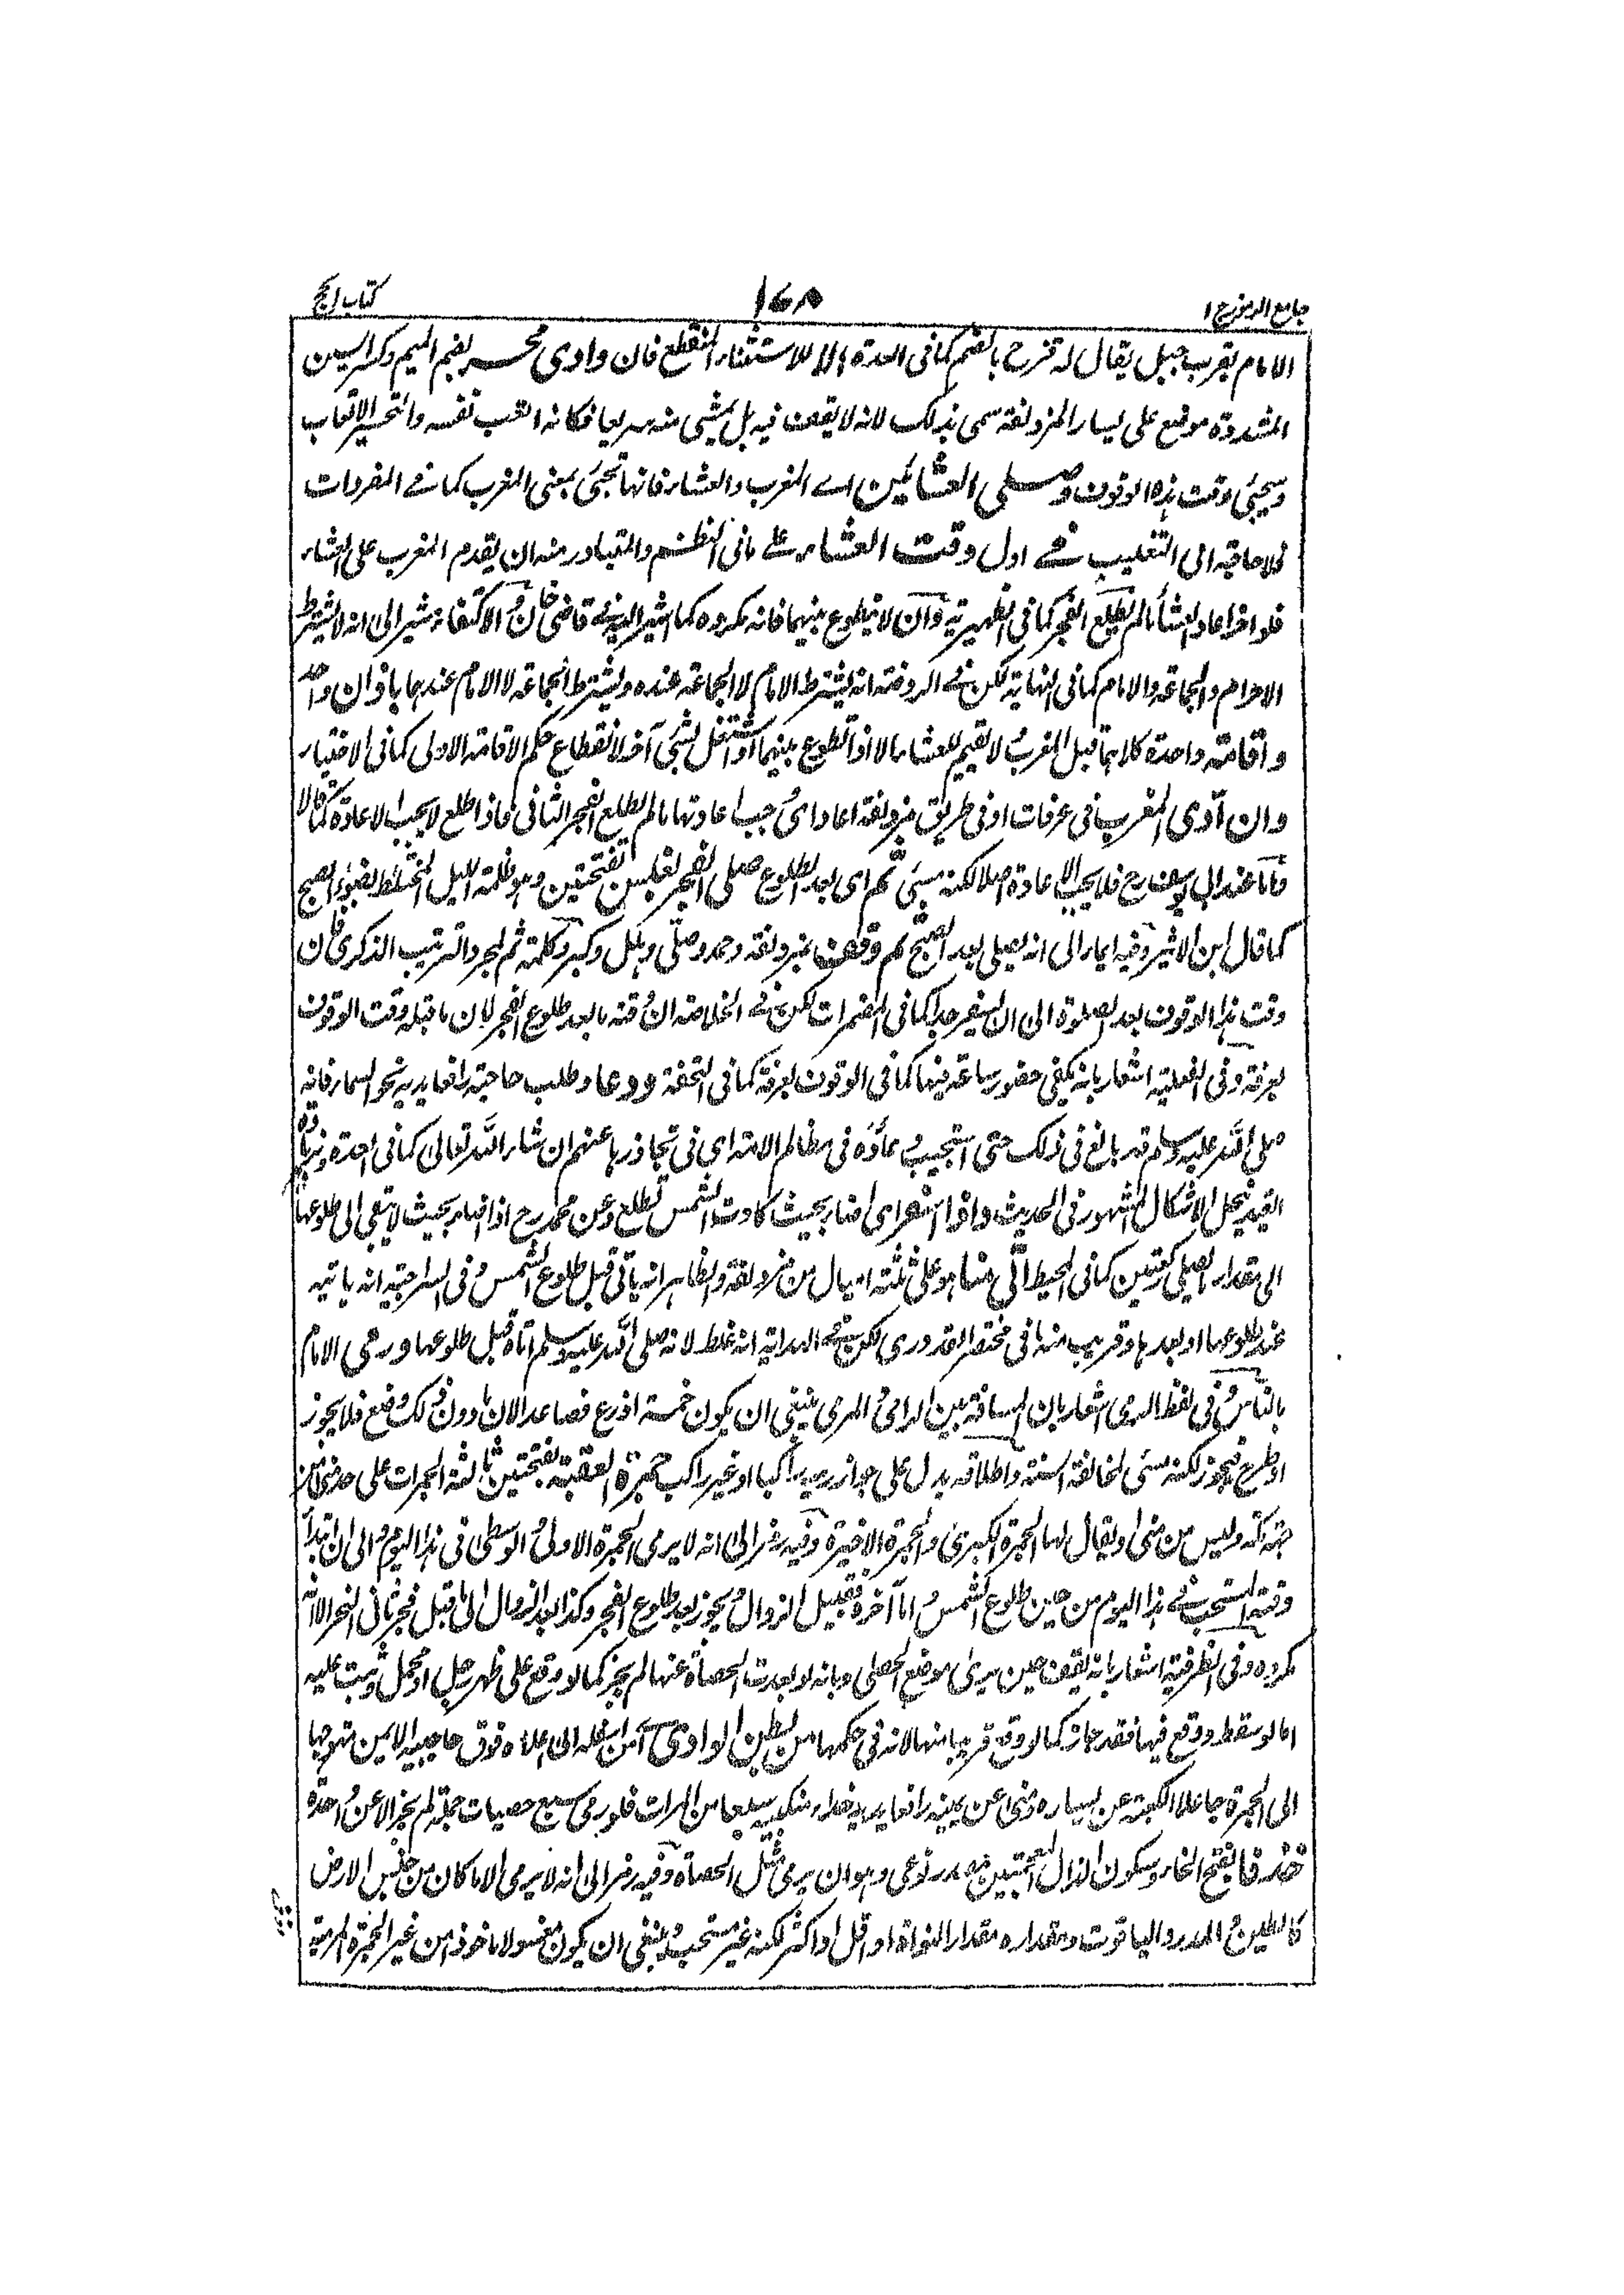 جامع الرموز ج ا
١٦٨
كتاب الحج
الامام بقرب جبل يقال له قزح بالضم كما فى العدة الا للاستثناء المنقطع فان وادى محسر بضم الميم وكسر السين
المشددة موضع على يسار المزدلفة سمى بذلك لانه لا يقف فيه بل يمشى منه سريعا فكانه اتعب نفسه والتحسير الاتعاب
وسيجئ وقت هذه الوقوف وصلى العشائين اے المغرب والعشاء فانها تجئ بمعنى المغرب كما فے المفردات
فلا حاجة الى التغليب فے اول وقت العشاء على ما فى النظم والمتبادر منه ان يقدم المغرب على العشاء
فلو اخرا عاد العشاء ما لم يطلع الفجر كما فى الظهيرية وان لا يتطوع بينهما فانه مكروه كما اشير اليه فے قاضى خان و الاكتفاء مشير الى انه لا يشترط
الاحرام والجماعة والامام كما فى النهاية لكن فے الروضة انه يشترط الامام لا الجماعة عنده ويشترط الجماعة لا الامام عندهما باذان واحد
واقامة واحدة كلاهما قبل المغرب و لا يقيم للعشاء الا اذا تطوع بينهما او اشتغل بشئ آخر لانقطاع حكم الاقامة الاولى كما فى الاختيار
وان ادى المغرب فى عرفات او فى طريق مزدلفة اعاد اى وجب اعادتها ما لم يطلع الفجر الثانى فاذا طلع لا يجب الاعادة
واما عند ابى يوسف رح فلا يجب الاعادة اصلا لكنه مسئ ثم اى بعد الطلوع صلى الفجر بغلس بفتحتين وهو ظلمة الليل المختلط بضوء الصبح
كما قال ابن الاثير وفيه ايماء الى انه يصلى بعد الصبح ثم وقف بمزدلفة وحمد وصلى وهلل وكبر وكلمة ثم لمجرد الترتيب الذكرى فان
وقت هذا الوقوف بعد الصلوة الى ان يسفر جدا كما فى المضمرات لكن فے الخلاصة ان وقته ما بعد طلوع الفجر لان ما قبله وقت الوقوف
بعرفة وفى الفعلية اشعار بانه يكفى حضور ساعة فيها كما فى الوقوف بعرفة كما فى التحفة ودعا وطلب حاجته رافعا يديه نحو السماء فانه
صلى الله عليه وسلم قد بالغ فى ذلك حتى استجيب دعاؤه فى مظالم الامة اى فى تجاوزها عنهم ان شاء الله تعالى كما فى العدة وزيادة
القيد يحل الاشكال المشهور فى الحديث واذا اسفر اى اضاء بحيث كادت الشمس تطلع وعن محمد رح اذا اضاء بحيث لا يبقى الى طلوعها
الى مقدار ما يصلى ركعتين كما فى المحيط اتى منى ما هو على ثلثة اميال من مزدلفة والظاهر انه ياتى قبل طلوع الشمس و فى السراجية انه ياتيه
عند طلوعها او بعدها وقريب منه ما فى مختصر القدورى لكن فے الهداية انه غلط لانه صلى الله عليه وسلم اتاه قبل طلوعها ورمى الامام
بالناس و فى لفظ الرمى اشعار بان المسافة بين الرامى و المرمى ينبغى ان يكون خمسة اذرع فصاعدا لان ما دون ذلك وضع فلا يجوز
او طرح فيجوز لكنه مسئ لمخالفة السنة واطلاقه يدل على جواز رميه راكبا او غير راكب جمرة العقبة بفتحتين ثالثة الجمرات على حد منى من
جهة مكة وليس من منى ويقال لها الجمرة الكبرى والجمرة الاخيرة وفيه رمز الى انه لا يرمى الجمرة الاولى و الوسطى فى هذا اليوم و الى ان ابتداء
وقته المستحب فے هذا اليوم من حين طلوع الشمس و اما آخره فقبيل الزوال و يجوز بعد طلوع الفجر وكذا بعد الزوال الى ما قبل فجر ثانى النحر الا انه
مكروه وفى الظرفية اشعار بانه يقف حين يرى موضع الحصى وبانه لو بعدت الحصاة عنها لم يجز كما لو وقع على ظهر رجل او محمل وثبت عليه
اما لو سقط ووقع فيها فقد جاز كما لو وقع قريبا منها لانه فى حكمها من بطن الوادى اى من اسفله الى اعلاه فوق حاجبيه الايمن متوجها
الى الجمرة جاعلا الكعبة عن يساره ومنى عن يمينه رافعا يديه حذاء منكبيه سبعا من المرات فلو رمى سبع حصيات جملة لم يجز الا عن واحدة
خذفا بفتح الخاء وسكون الذال المعجمتين مصدر نوعى وهو ان يرمى مثل الحصاة وفيه رمز الى انه لا يرمى الا ما كان من جنس الارض
كالطين و المدر والياقوت ومقداره مقدار النواة او اقل او اكثر لكنه غير مستحب و ينبغى ان يكون مغسولا ماخوذا من غير الجمرة المرمية